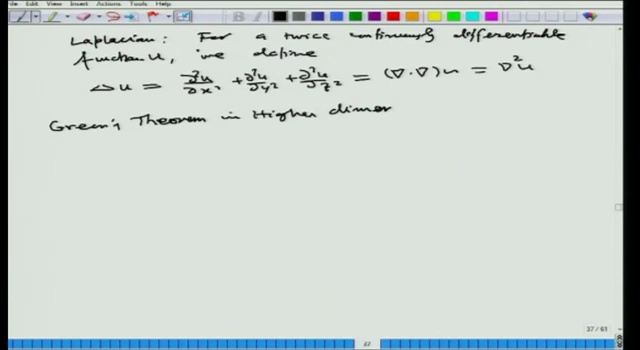 File Edit View Insert Actions Tools Help
Laplacian: For a twice continuously differentiable
function u, we define
Δu = ∂²u/∂x² + ∂²u/∂y² + ∂²u/∂z² = (∇·∇)u = ∇²u
Green's Theorem in Higher dimen
37 / 61
37